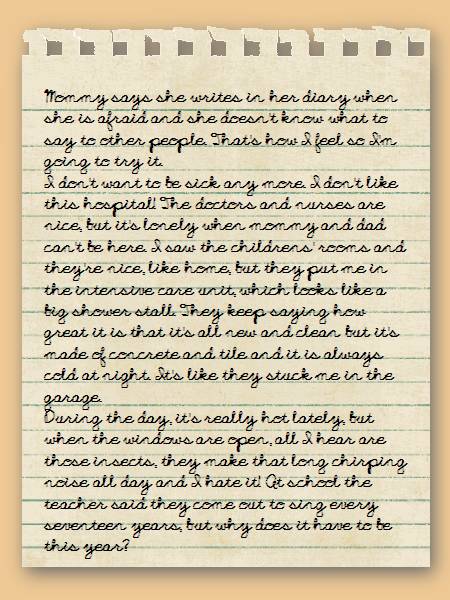 Mommy says she writes in her diary when
she is afraid and she doesn't know what to
say to other people. That's how I feel so I'm
going to try it.
I don't want to be sick any more. I don't like
this hospital! The doctors and nurses are
nice, but it's lonely when mommy and dad
can't be here. I saw the childrens' rooms and
they're nice, like home, but they put me in
the intensive care unit, which looks like a
big shower stall. They keep saying how
great it is that it's all new and clean but it's
made of concrete and tile and it is always
cold at night. It's like they stuck me in the
garage.
During the day, it's really hot lately, but
when the windows are open, all I hear are
those insects, they make that long chirping
noise all day and I hate it! At school the
teacher said they come out to sing every
seventeen years, but why does it have to be
this year?